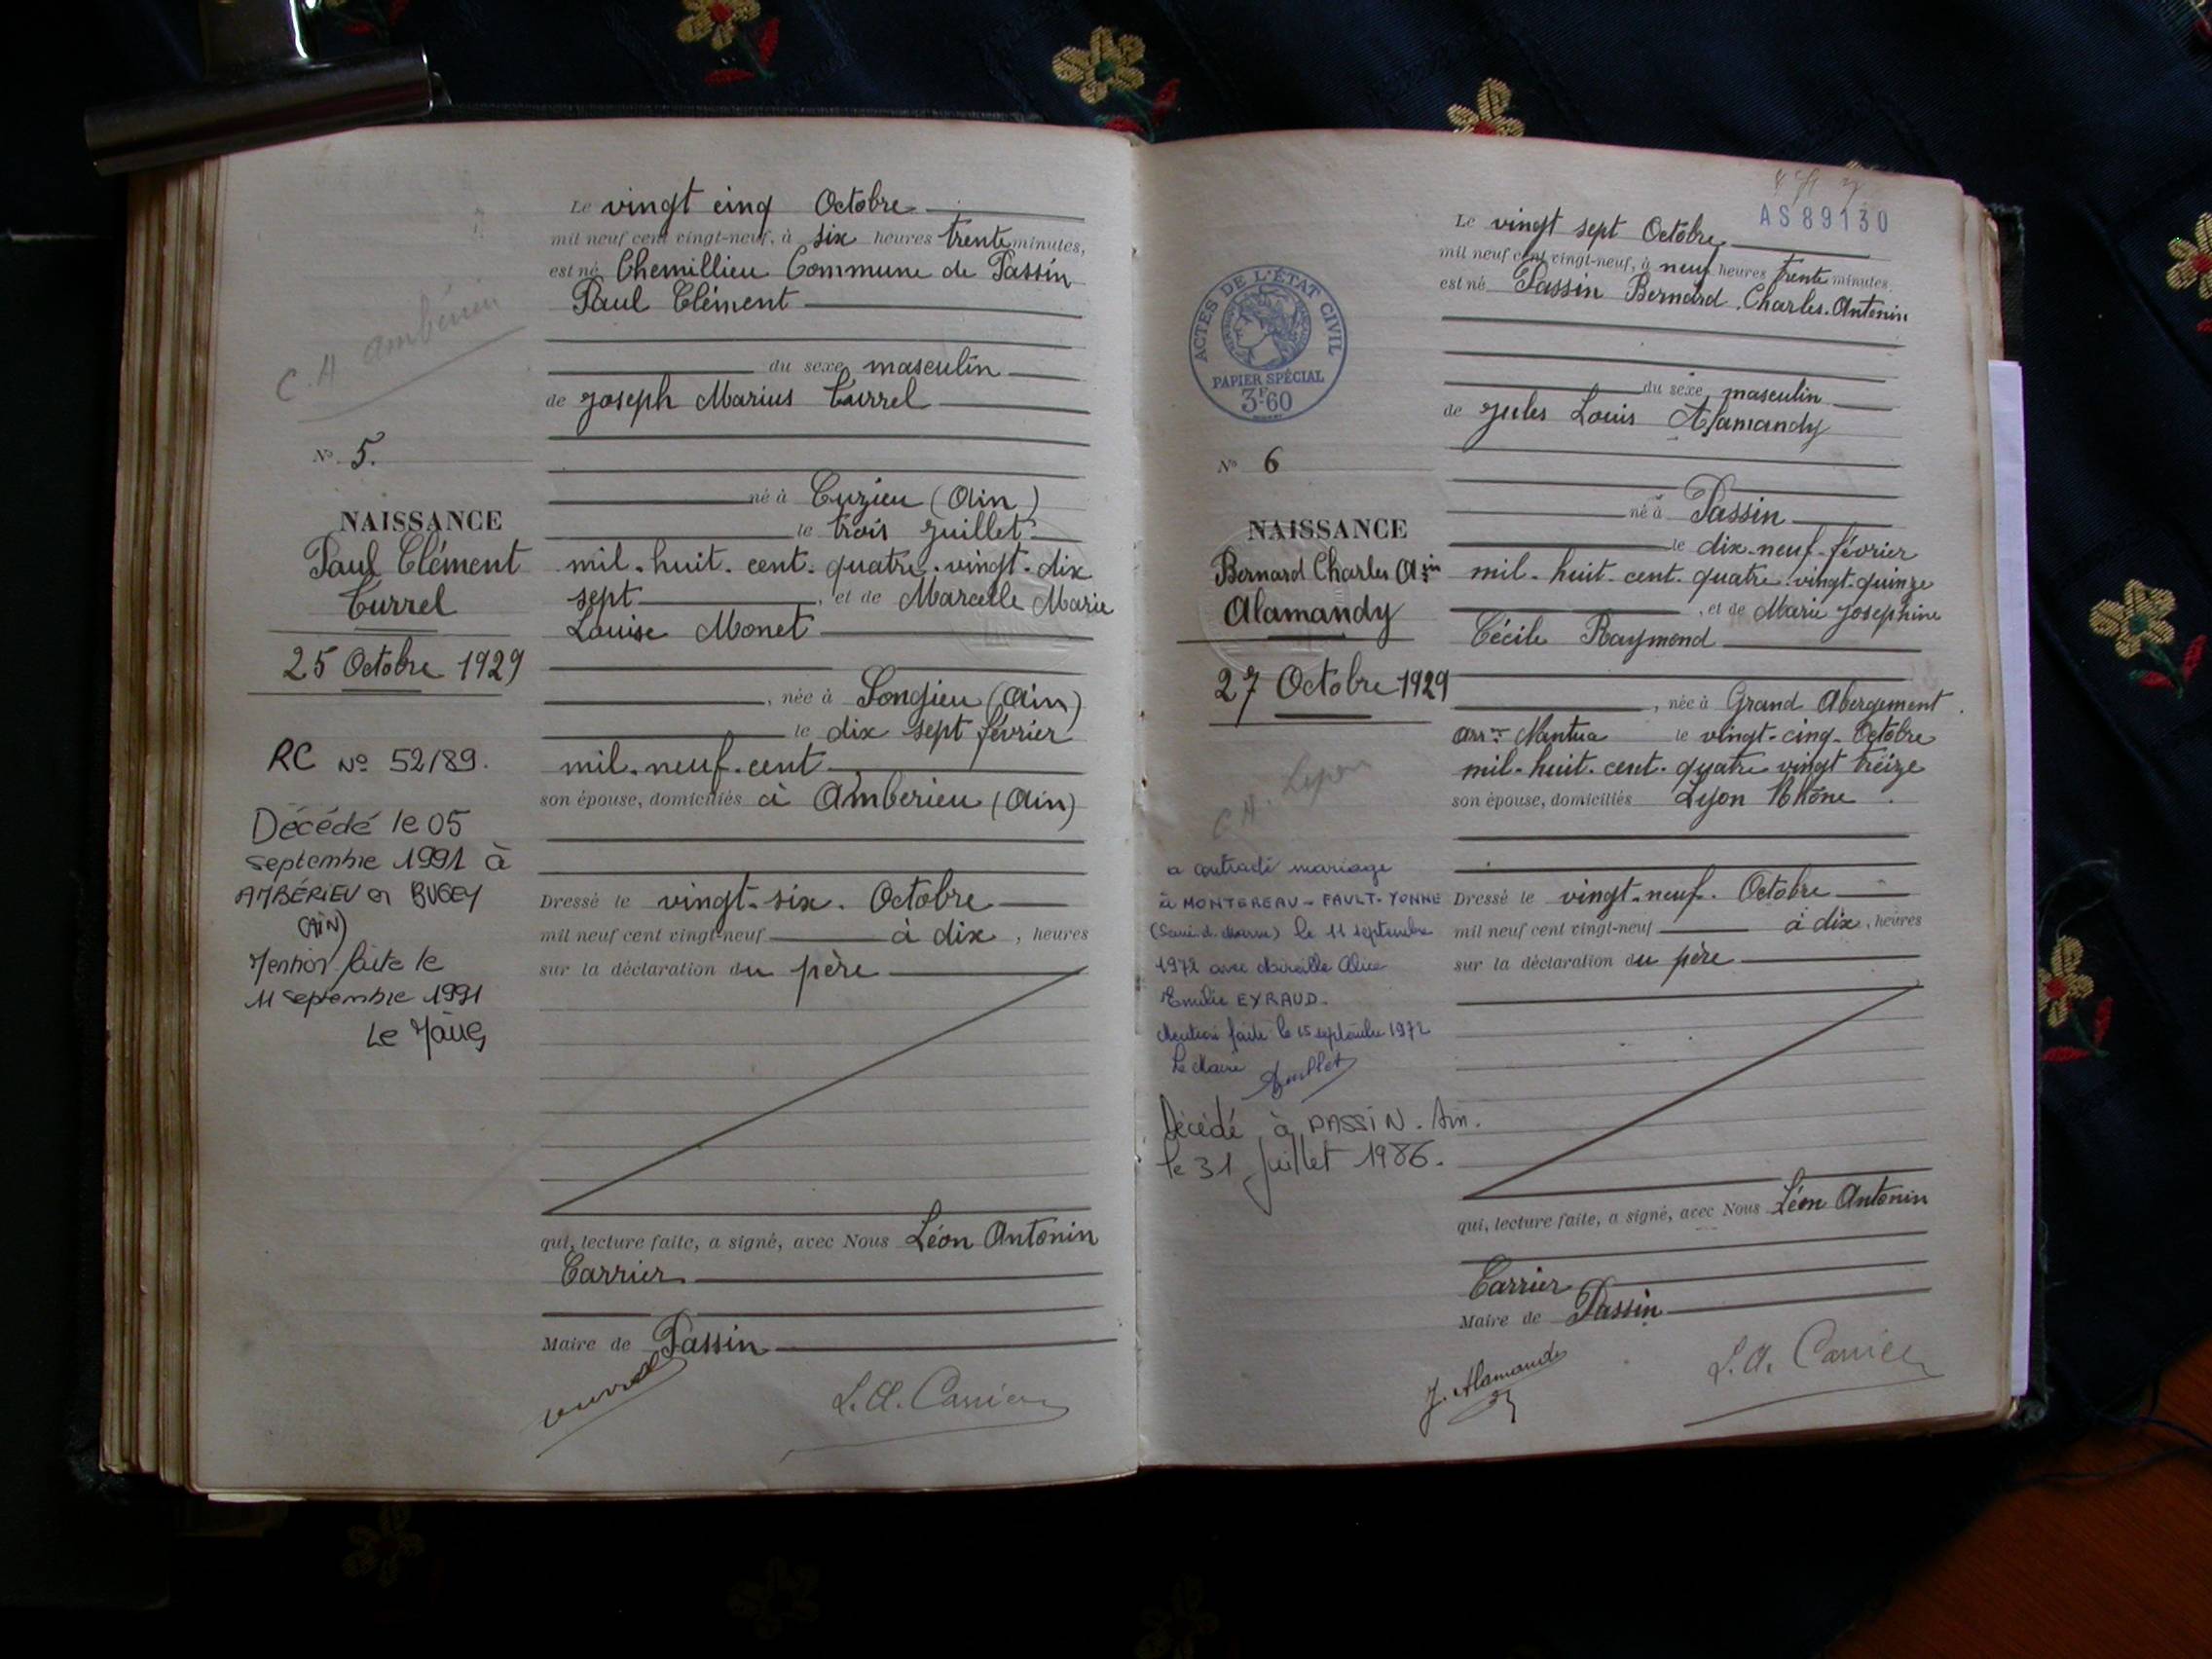 C.H ambérieu
N° 5.
NAISSANCE
Paul Clément
Turrel
25 Octobre 1929
RC N° 52/89.
Décédé le 05
septembre 1991 à
AMBÉRIEU en BUGEY
(AIN)
Mention faite le
11 septembre 1991
Le Maire,
Le vingt cinq Octobre
mil neuf cent vingt-neuf, à six heures trente minutes,
est né Chemillieu Commune de Passin
Paul Clément
du sexe masculin
de Joseph Marius Turrel
né à Cuzieu (Ain)
le trois Juillet
mil. huit. cent. quatre. vingt. dix
sept, et de Marcelle Marie
Louise Monet
, née à Songieu (Ain)
le dix sept février
mil. neuf. cent
son épouse, domiciliés à Amberieu (Ain)
Dressé le vingt-six. Octobre
mil neuf cent vingt-neuf à dix, heures
sur la déclaration du père
qui, lecture faite, a signé, avec Nous Léon Antonin
Carrier
Maire de Passin
L. A. Carrier
AS 89130
ACTES DE L'ÉTAT CIVIL
PAPIER SPÉCIAL
3F.60
N° 6
NAISSANCE
Bernard Charles Ain
Alamandy
27 Octobre 1929
C.H. Lyon
a contracté mariage
à MONTEREAU-FAULT-YONNE
(Seine. & Marne) le 11 septembre
1972 avec Mireille Alice
Emilie EYRAUD.
Mention faite le 15 septembre 1972
Le Maire
Décédé à PASSIN. Ain.
le 31 Juillet 1986.
Le vingt sept Octobre
mil neuf cent vingt-neuf, à neuf heures trente minutes
est né Passin Bernard. Charles. Antonin
du sexe masculin
de Jules Louis Alamandy
né à Passin
le dix-neuf-février
mil. huit. cent. quatre. vingt. quinze
, et de Marie Josephine
Cécile Raymond
, née à Grand Abergement
arrt Nantua le vingt-cinq-Octobre
mil. huit. cent. quatre vingt treize
son épouse, domiciliés Lyon Rhône.
Dressé le vingt-neuf. Octobre
mil neuf cent vingt-neuf à dix, heures
sur la déclaration du père
qui, lecture faite, a signé, avec Nous Léon Antonin
Carrier
Maire de Passin
J. Alamandy
L. A. Carrier